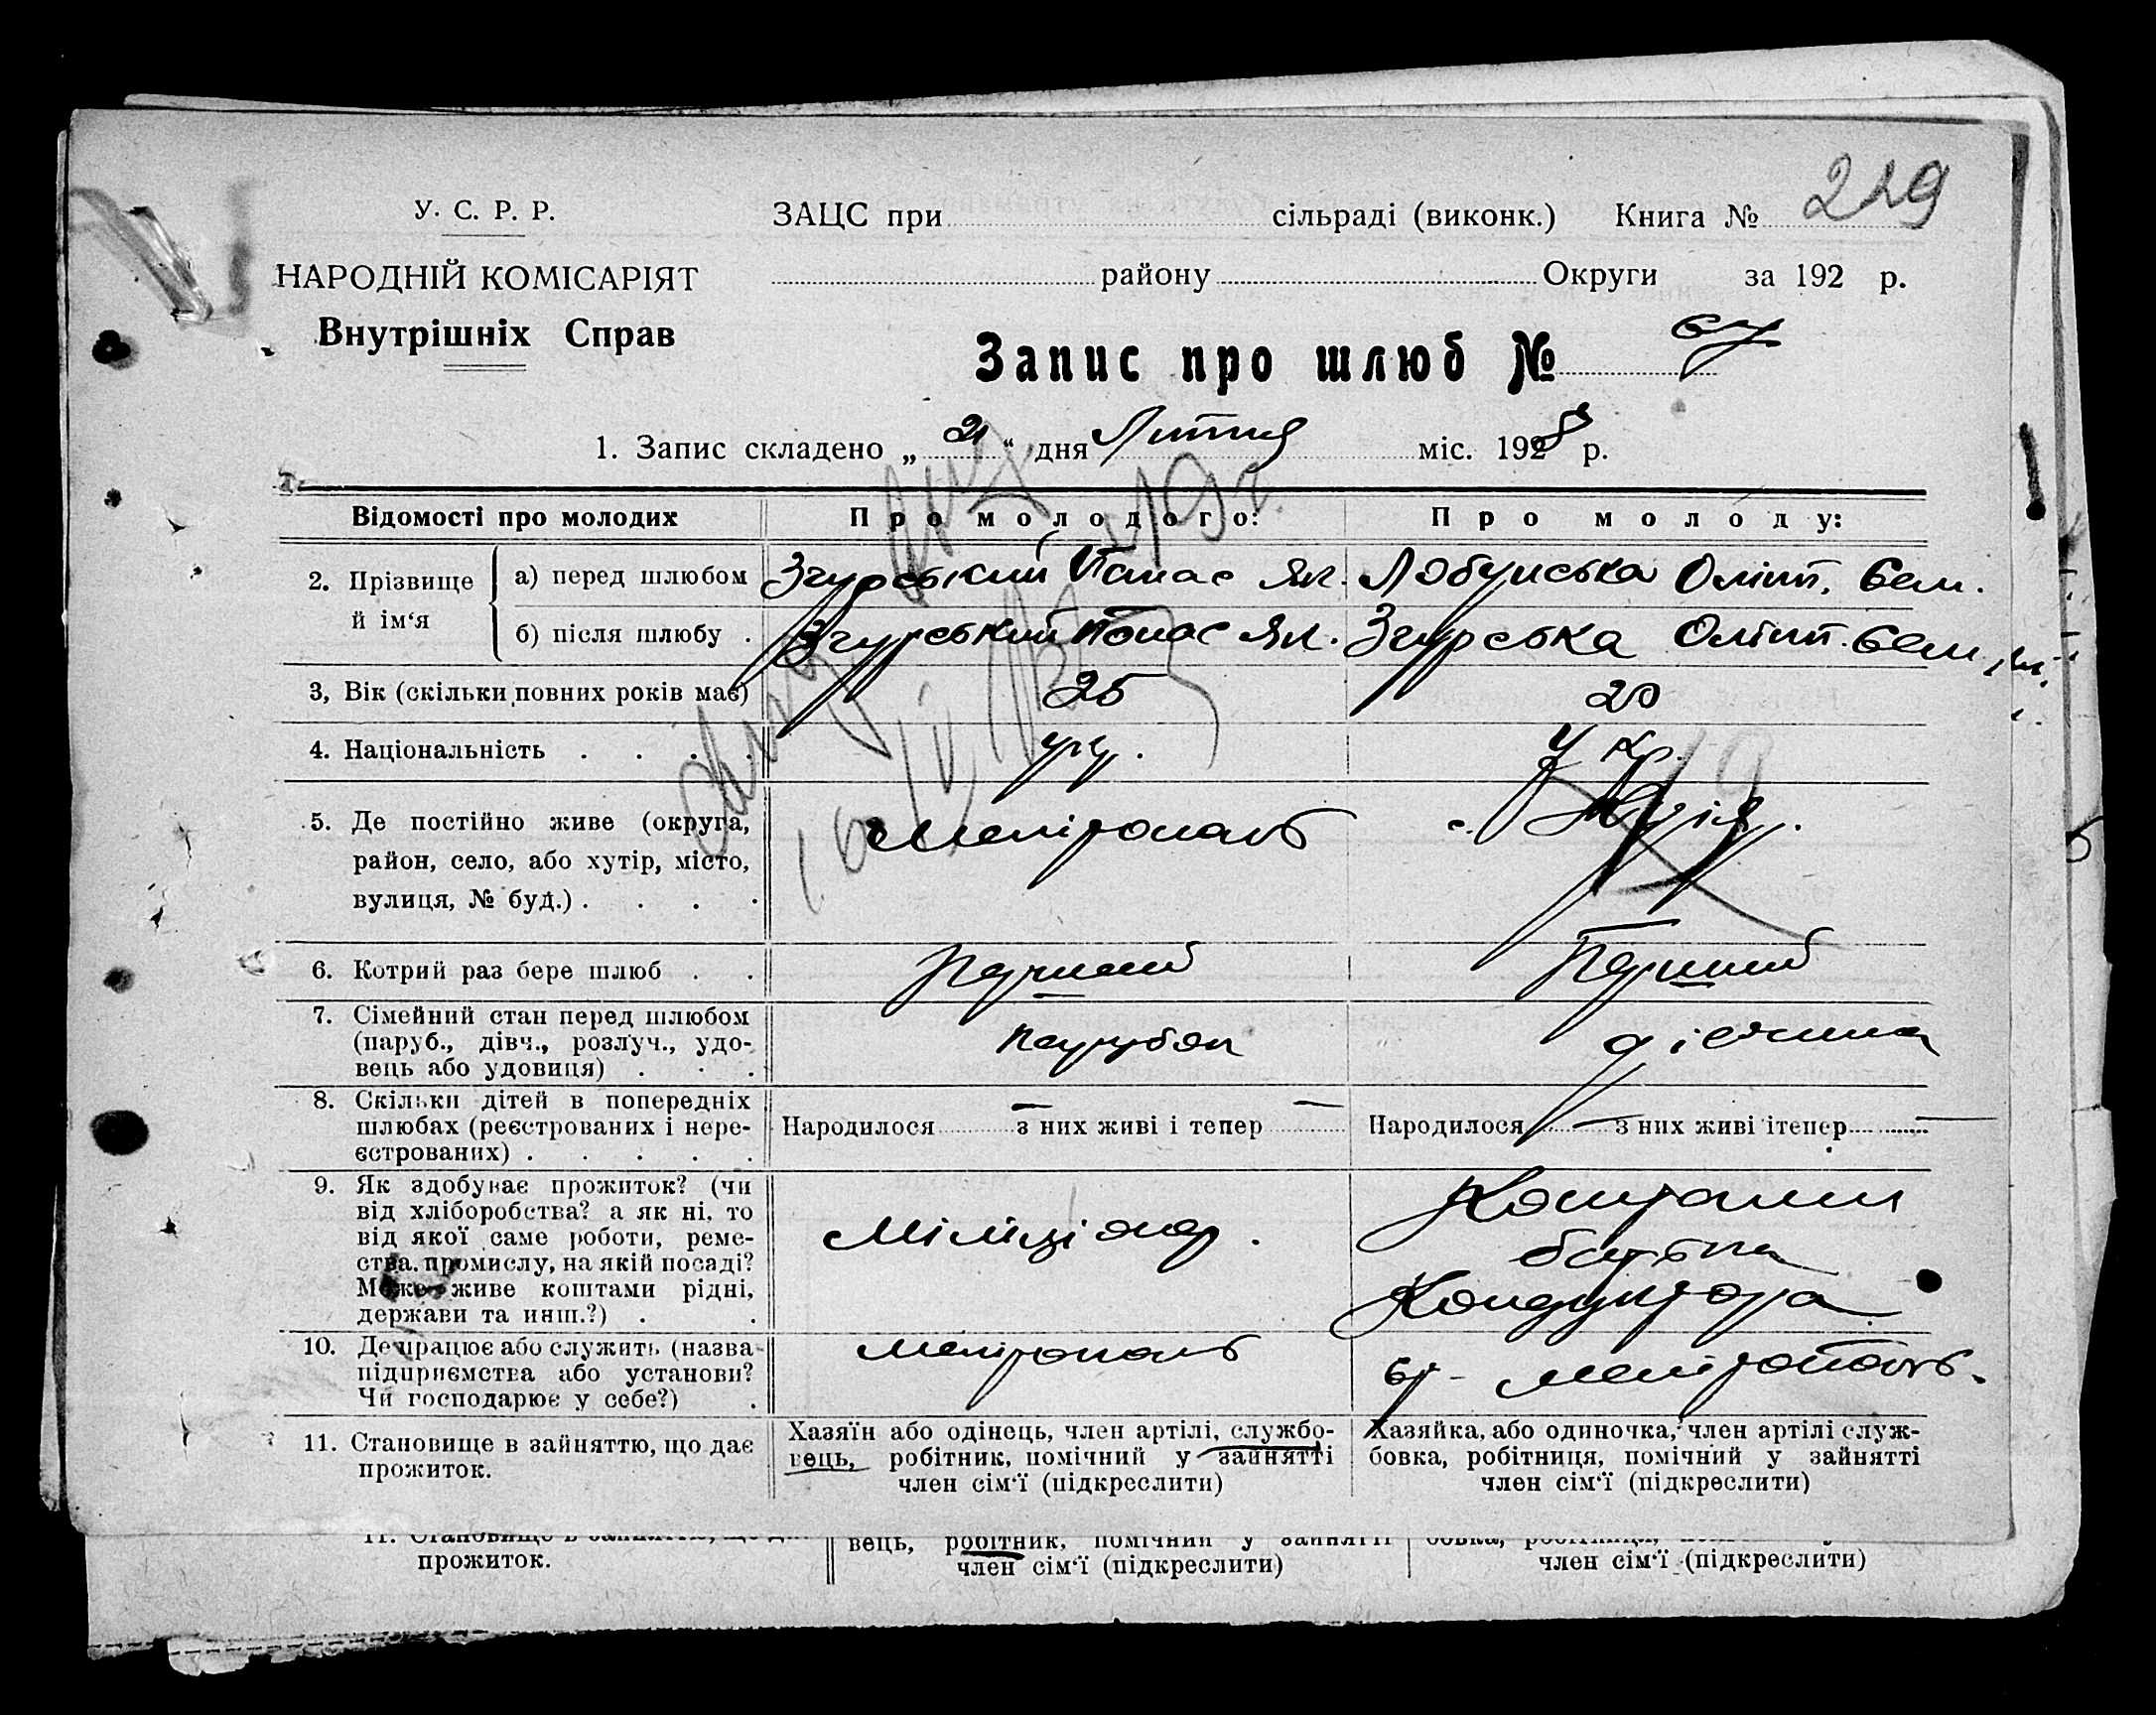 229
У. С. Р. Р.
НАРОДНІЙ КОМІСАРІЯТ
Внутрішніх Справ
ЗАЦС при сільраді (виконк.) Книга №
району Округи за 192 р.
Запис про шлюб № 67
1. Запис складено „21“ дня Лютня міс. 1928 р.
Відомості про молодих Про молодого: Про молоду:
2. Прізвище й ім‘я
а) перед шлюбом Згурський Панас Як. Лобунська Олімп. Сем.
б) після шлюбу . Згурський Панас Як. Згурська Олімп. Сем.
3, Вік (скільки повних років має) 25 20
4. Національність . . . . Укр.
5. Де постійно живе (округа,
район, село, або хутір, місто,
вулиця, № буд.) . . . .
Мелітополь с.
6. Котрий раз бере шлюб . . Перший Перший
7. Сімейний стан перед шлюбом
(паруб., дівч., розлуч., удо-
вець або удовиця) . . .
парубок дівчина
8. Скільки дітей в попередніх
шлюбах (реєстрованих і нере-
єстрованих) . . . . .
Народилося — з них живі і тепер —
Народилося — з них живі ітепер —
9. Як здобуває прожиток? (чи
від хліборобства? а як ні, то
від якої саме роботи, реме-
ства, промислу, на якій посаді?
Може живе коштами рідні,
держави та инш.?) . .
Міліціонер.
Коштами
батька
Кондуктора
10. Де працює або служить (назва
підприємства або установи?
Чи господарює у себе?) .
Мелітополь
ст. Мелітополь.
11. Становище в зайняттю, що дає
прожиток.
Хазяїн або одінець, член артілі, службо-
вець, робітник, помічний у зайнятті
член сім‘ї (підкреслити)
Хазяйка, або одиночка, член артілі служ-
бовка, робітниця, помічний у зайнятті
член сім‘ї (підкреслити)
прожиток.
вець, робітник, помічний у зайнятті
член сім‘ї (підкреслити)
член сім‘ї (підкреслити)